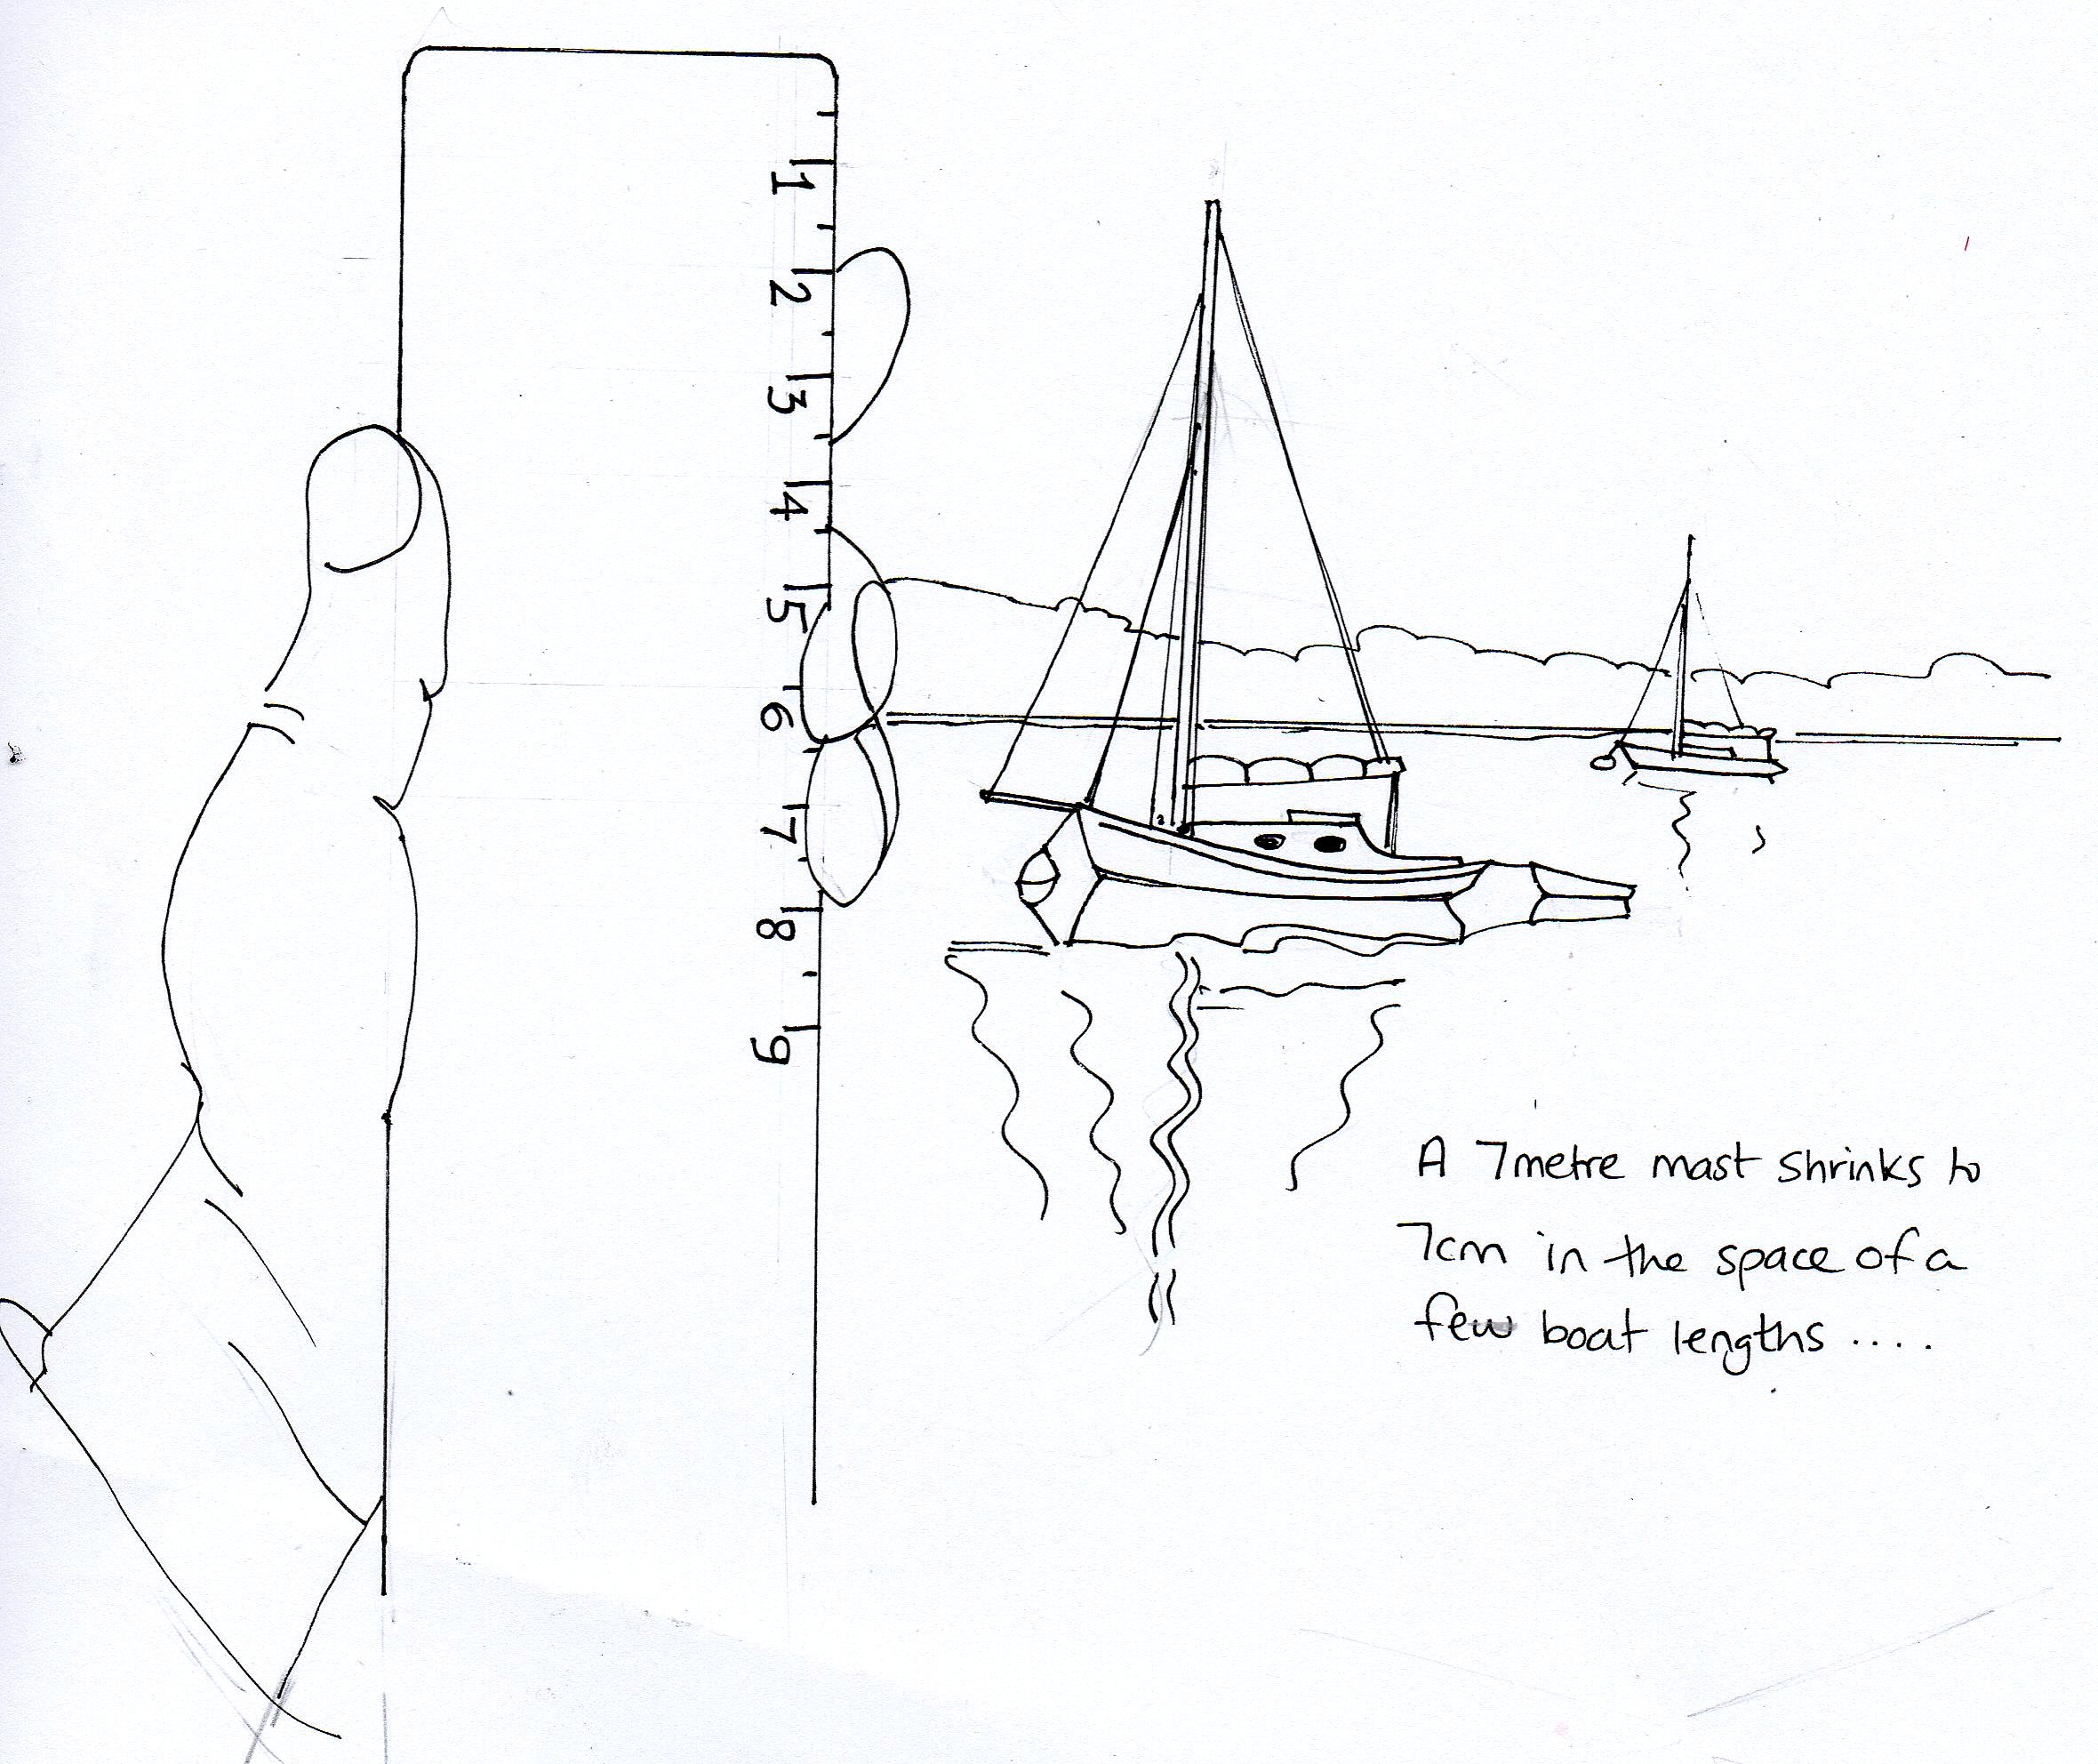 1
2
3
4
5
6
7
8
9
A 7metre mast shrinks to
7cm in the space of a
few boat lengths ....